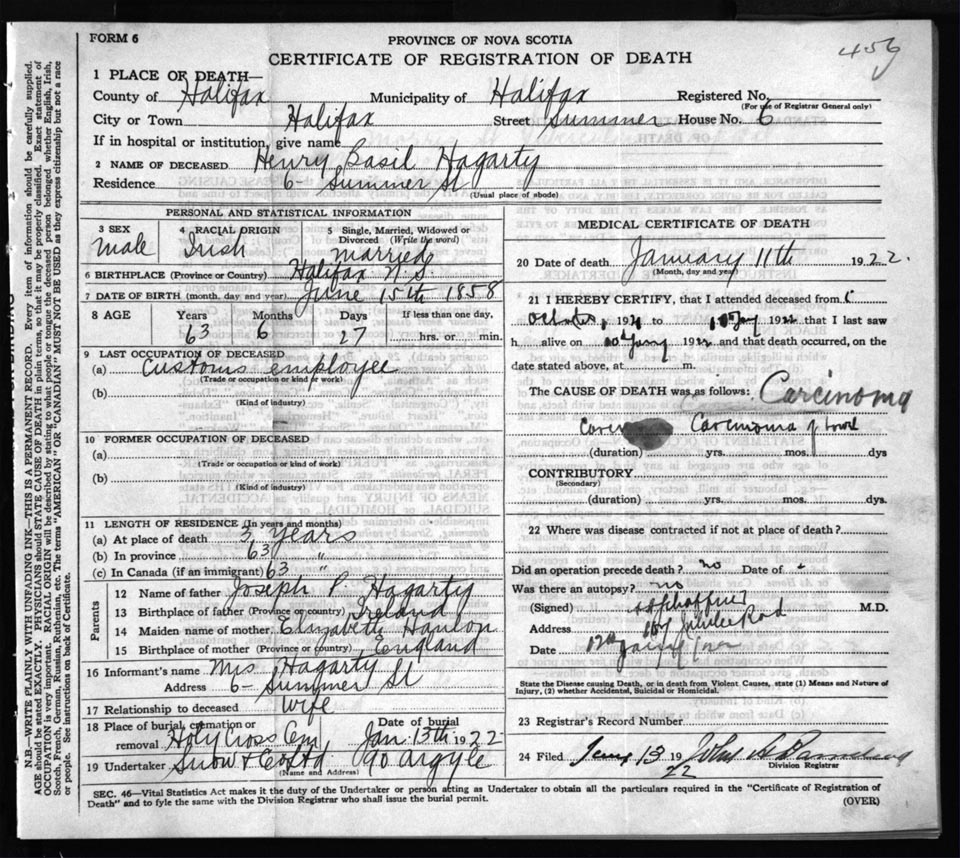 FORM 6
456
PROVINCE OF NOVA SCOTIA
CERTIFICATE OF REGISTRATION OF DEATH
1 PLACE OF DEATH—
County of Halifax Municipality of Halifax Registered No.
(For use of Registrar General only)
City or Town Halifax Street Summer House No. 6
If in hospital or institution, give name
2 NAME OF DECEASED Henry Basil Hagarty
Residence 6- Summer St
(Usual place of abode)
PERSONAL AND STATISTICAL INFORMATION
3 SEX 4 RACIAL ORIGIN 5 Single, Married, Widowed or
Divorced (Write the word)
male Irish married
6 BIRTHPLACE (Province or Country) Halifax N.S.
7 DATE OF BIRTH (month, day and year) June 15th 1858
8 AGE Years Months Days If less than one day,
63 6 27 hrs. or min.
9 LAST OCCUPATION OF DECEASED
(a) Customs employee
(Trade or occupation or kind of work)
(b)
(Kind of industry)
10 FORMER OCCUPATION OF DECEASED
(a)
(Trade or occupation or kind of work)
(b)
(Kind of industry)
11 LENGTH OF RESIDENCE (In years and months)
(a) At place of death 3 years
(b) In province 63 "
(c) In Canada (if an immigrant) 63 "
Parents
12 Name of father Joseph P. Hagarty
13 Birthplace of father (Province or country) Ireland
14 Maiden name of mother Elizabeth Hanlon
15 Birthplace of mother (Province or country) England
16 Informant's name Mrs Hagarty
Address 6- Summer St
17 Relationship to deceased wife
18 Place of burial, cremation or Date of burial
removal Holy Cross Cem Jan. 13th 1922
19 Undertaker Snow & Co Ltd 90 Argyle
(Name and Address)
MEDICAL CERTIFICATE OF DEATH
20 Date of death January 11th 1922.
(Month, day and year)
21 I HEREBY CERTIFY, that I attended deceased from
October 1, 1921 to 10 Jany 1922 that I last saw
h alive on 10 Jany 1922 and that death occurred, on the
date stated above, at m.
The CAUSE OF DEATH was as follows: Carcinoma
Carcinoma of bowel
(duration) yrs. mos. dys
CONTRIBUTORY
(Secondary)
(duration) yrs. mos. dys.
22 Where was disease contracted if not at place of death?
Did an operation precede death? no Date of -
Was there an autopsy? no
(Signed) M.D.
Address Jubilee Road
Date 12th
State the Disease causing Death, or in death from Violent Causes, state (1) Means and Nature of
Injury, (2) whether Accidental, Suicidal or Homicidal.
23 Registrar's Record Number
24 Filed Jany 13 1922 John A
Division Registrar
SEC. 46—Vital Statistics Act makes it the duty of the Undertaker or person acting as Undertaker to obtain all the particulars required in the "Certificate of Registration of
Death" and to fyle the same with the Division Registrar who shall issue the burial permit.
(OVER)
N.B.—WRITE PLAINLY WITH UNFADING INK—THIS IS A PERMANENT RECORD. Every item of information should be carefully supplied.
AGE should be stated EXACTLY. PHYSICIANS should STATE CAUSE OF DEATH in plain terms, so that it may be properly classified. Exact statement of
OCCUPATION is very important. RACIAL ORIGIN will be described by stating to what people or tongue the deceased person belonged whether English, Irish,
Scotch, French, German, Russian, Ruthenian, etc. The terms "AMERICAN" OR "CANADIAN" MUST NOT BE USED as they express citizenship but not a race
or people. See instructions on back of Certificate.